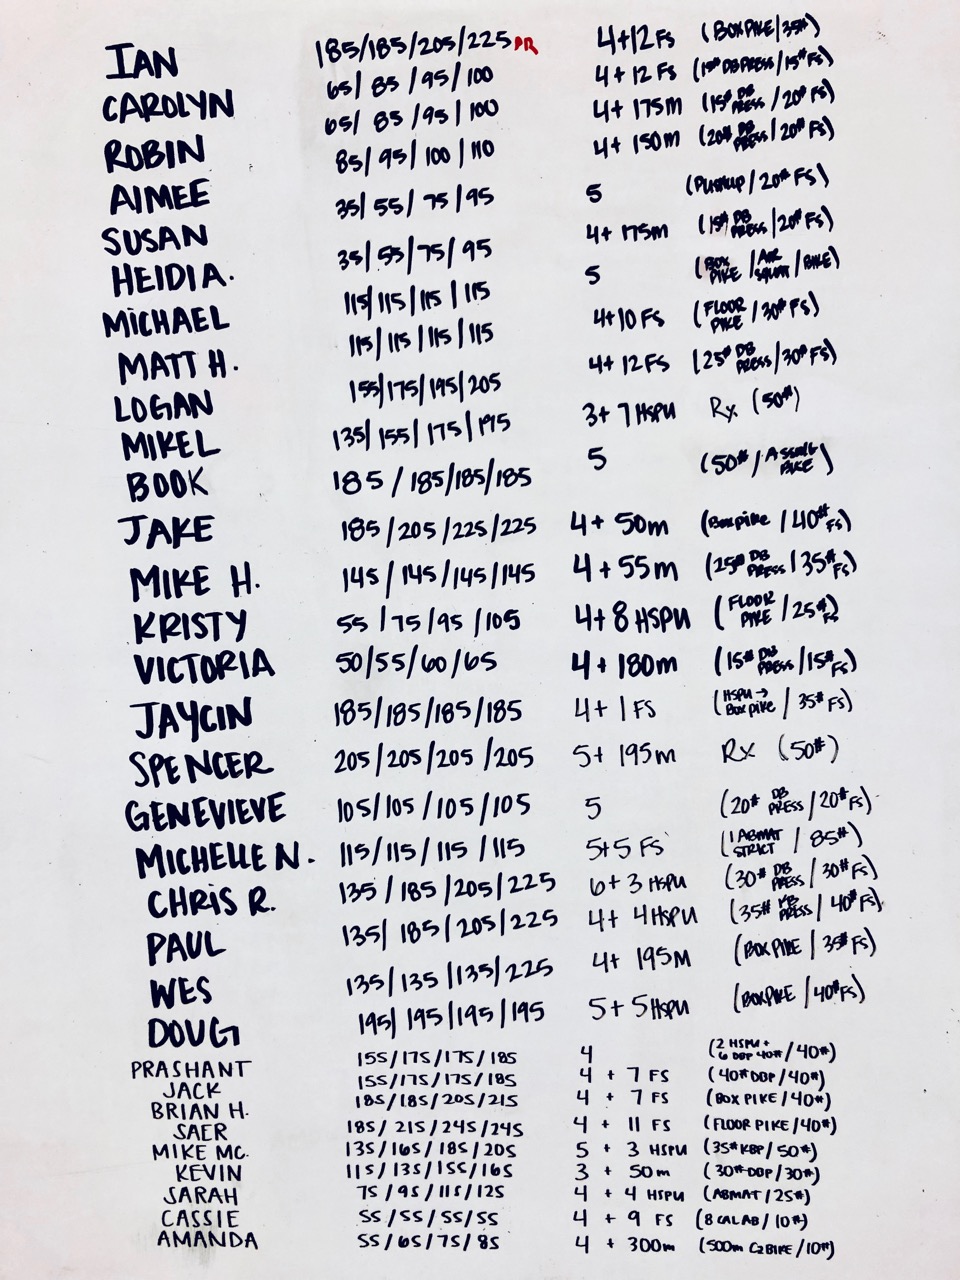 IAN 185/185/205/225 PR 4+12 FS (BOX PIKE/35#)
CAROLYN 65/85/95/100 4+12 FS (15# DB PRESS/15# FS)
ROBIN 65/85/95/100 4+175m (15# DB PRESS/20# FS)
AIMEE 85/95/100/110 4+150m (20# DB PRESS/20# FS)
SUSAN 35/55/75/95 5 (PUSHUP/20# FS)
HEIDI A. 35/55/75/95 4+175m (15# DB PRESS/20# FS)
MICHAEL 115/115/115/115 5 (BOX PIKE/AIR SQUAT/BIKE)
MATT H. 115/115/115/115 4+10 FS (FLOOR PIKE/30# FS)
LOGAN 155/175/195/205 4+12 FS (25# DB PRESS/30# FS)
MIKEL 135/155/175/195 3+7 HSPU Rx (50#)
BOOK 185/185/185/185 5 (50#/ASSAULT BIKE)
JAKE 185/205/225/225 4+50m (Box pike/40# FS)
MIKE H. 145/145/145/145 4+55m (25# DB PRESS/35# FS)
KRISTY 55/75/95/105 4+8 HSPU (FLOOR PIKE/25# FS)
VICTORIA 50/55/60/65 4+180m (15# DB PRESS/15# FS)
JAYCIN 185/185/185/185 4+1 FS (HSPU → Box pike/35# FS)
SPENCER 205/205/205/205 5+195m Rx (50#)
GENEVIEVE 105/105/105/105 5 (20# DB PRESS/20# FS)
MICHELLE N. 115/115/115/115 5+5 FS (1 ABMAT STRICT/85#)
CHRIS R. 135/185/205/225 6+3 HSPU (30# DB PRESS/30# FS)
PAUL 135/185/205/225 4+4 HSPU (35# KB PRESS/40# FS)
WES 135/135/135/225 4+195M (BOX PIKE/35# FS)
DOUG 195/195/195/195 5+5 HSPU (BOX PIKE/40# FS)
PRASHANT 155/175/175/185 4 (2 HSPU + 6 DBP 40#/40#)
JACK 155/175/175/185 4 + 7 FS (40# DBP/40#)
BRIAN H. 185/185/205/215 4 + 7 FS (BOX PIKE/40#)
SAER 185/215/245/245 4 + 11 FS (FLOOR PIKE/40#)
MIKE MC. 135/165/185/205 5 + 3 HSPU (35# KBP/50#)
KEVIN 115/135/155/165 3 + 50m (30# DBP/30#)
SARAH 75/95/115/125 4 + 4 HSPU (ABMAT/25#)
CASSIE 55/55/55/55 4 + 9 FS (8 CAL AB/10#)
AMANDA 55/65/75/85 4 + 300m (500m C2BIKE/10#)